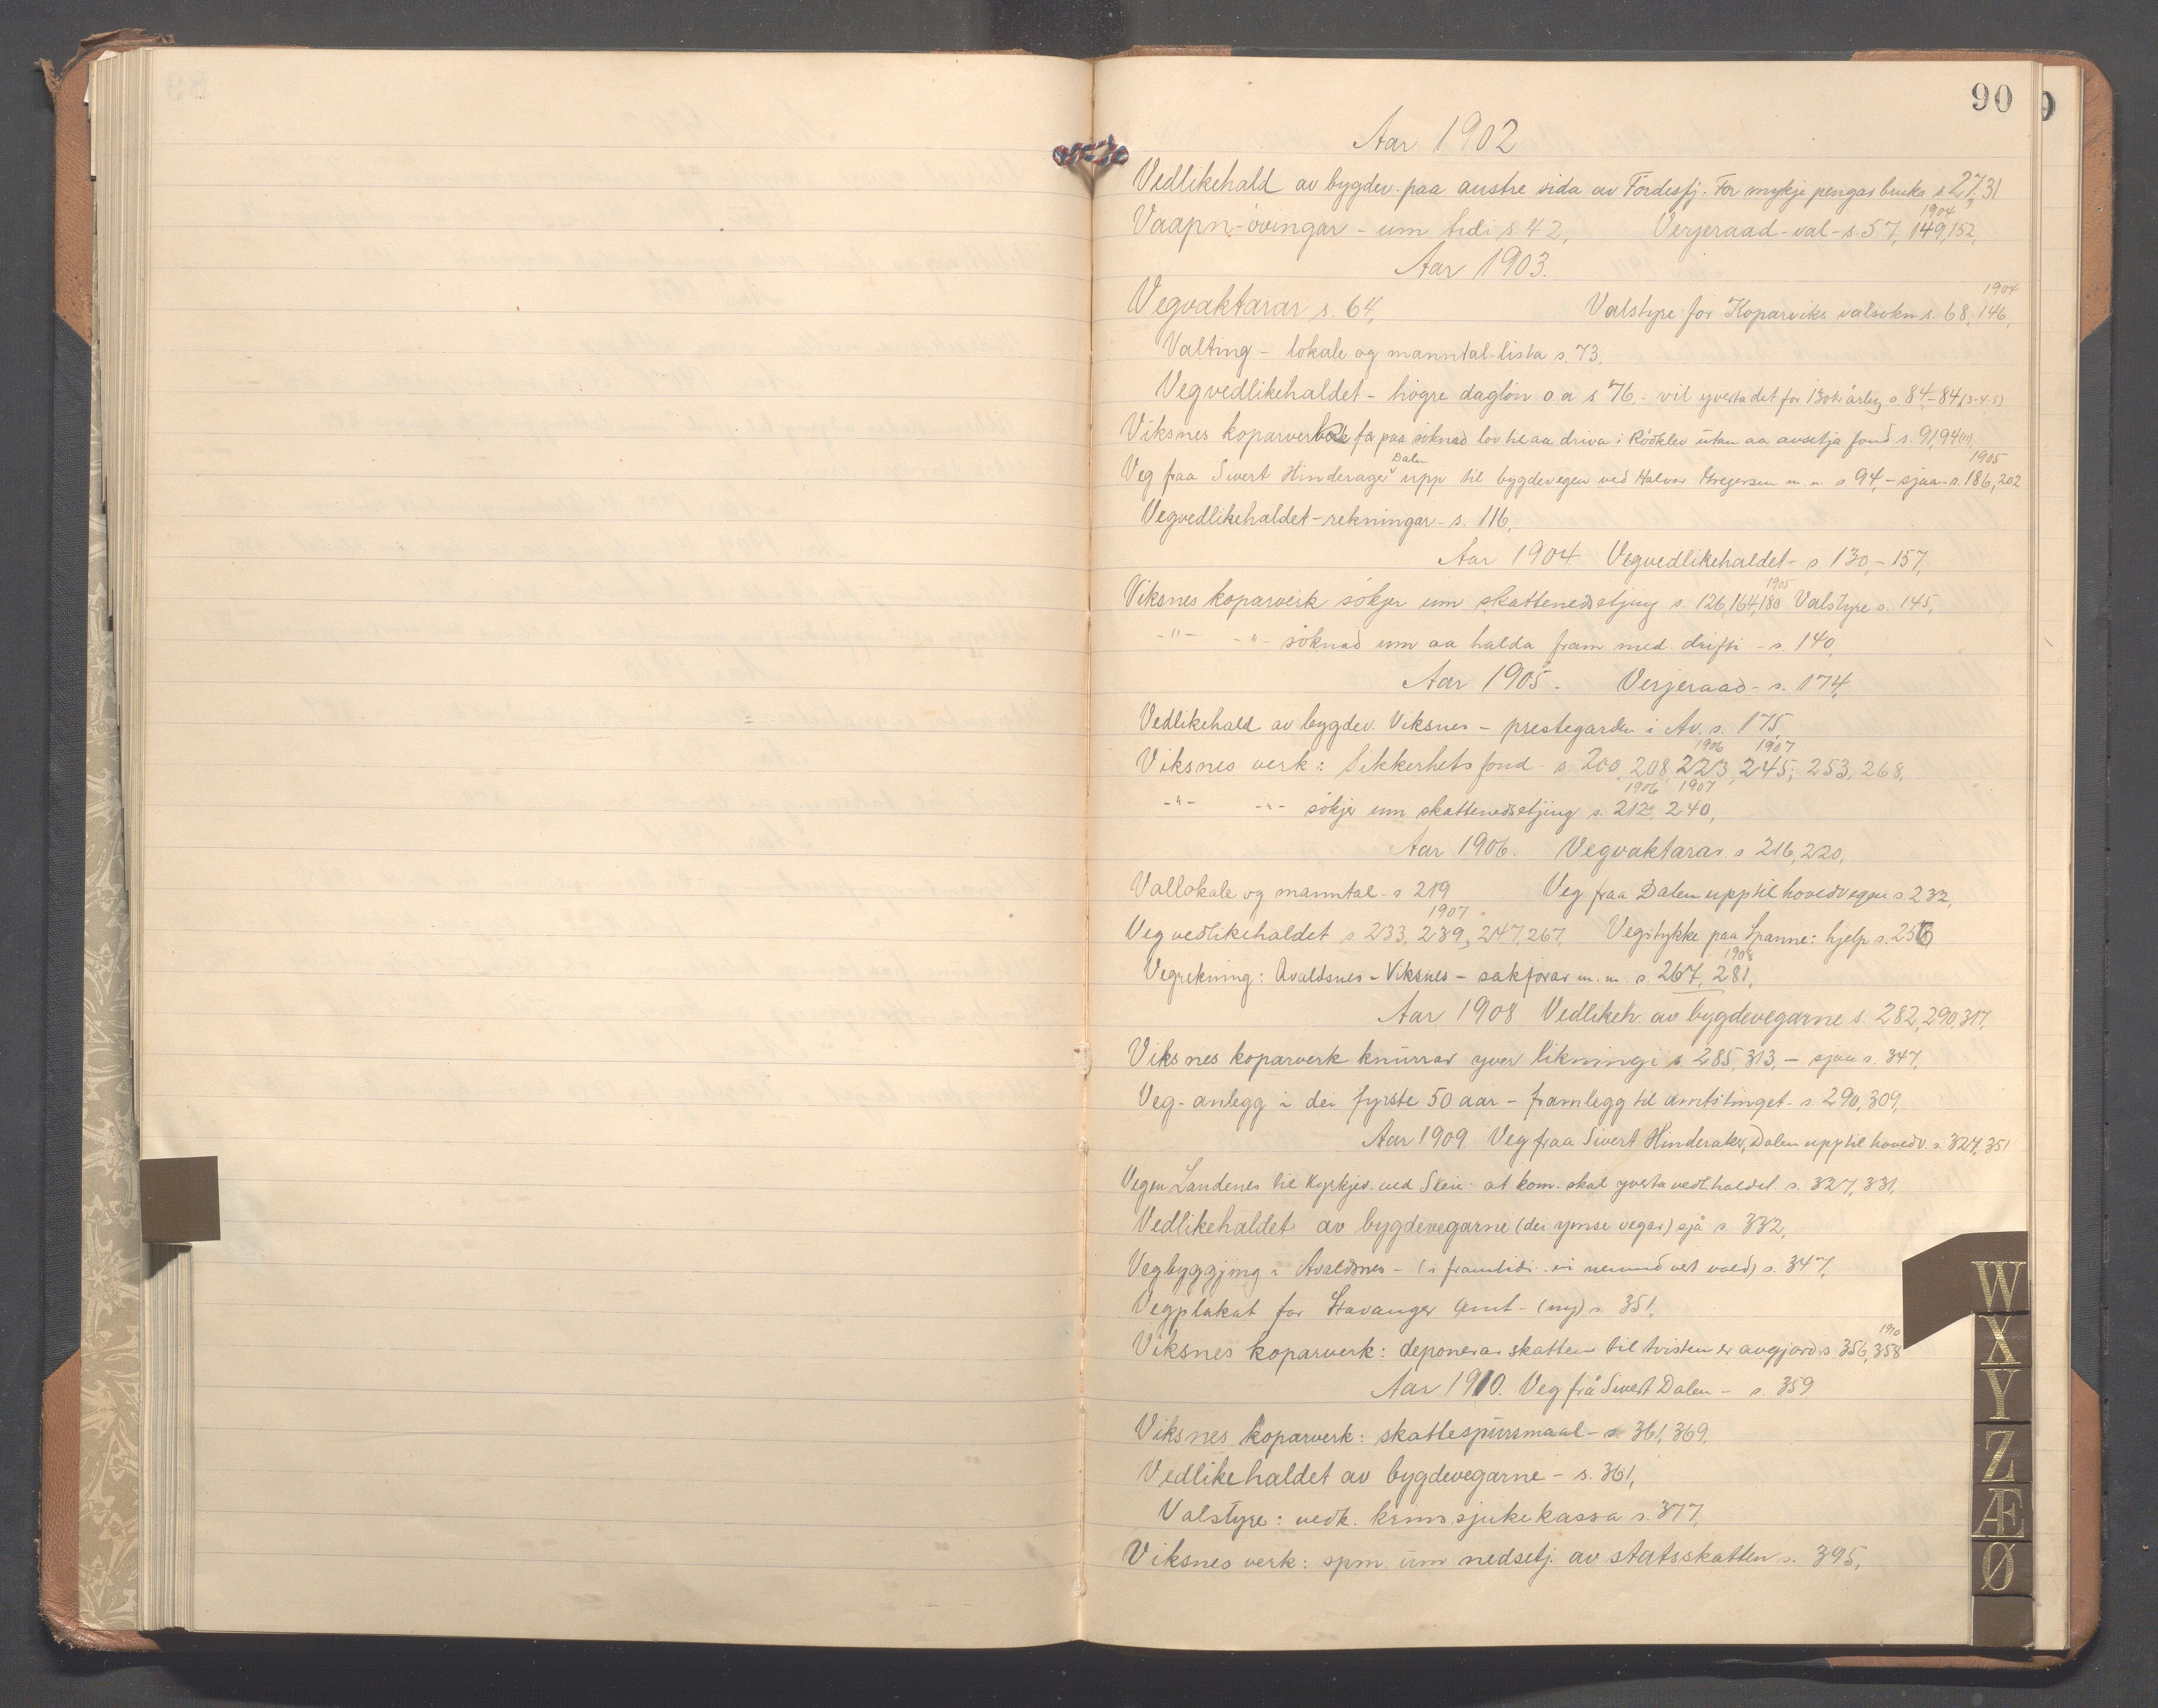 90
Aar 1902
Vedlikehald av bygdev. paa austre sida av Fördesfj. For mykje pengar bruka s. 27, 31
1904
Vaapn-övingar - um tidi s 42, Verjeraad-val - s. 57, 149, 152,
Aar 1903.
1904
Vegvaktarar s. 64, Valstyre for Koparviks valsokn s. 68, 146,
Valting - lokale og manntal-lista s. 73,
Vegvedlikehaldet - högre daglön o.a s 76, - vil yvertadet for 130 kr årleg s. 84, - 84 (3-4-5)
Viksnes koparverk fær paa söknad lov til aa driva i Rödklev utan aa avsetja fond s. 91, 94
Dalen 1905
Veg fraa Sivert Hinderager upp til bygdevegen ved Halvor Gregersen m.m. s 94, - sjaa - s. 186, 202
Vegvedlikehaldet - rekningar - s. 116,
Aar 1904 Vegvedlikehaldet - s. 130, - 157,
1905
Viksnes koparverk sökjer um skattenedsetjing s. 126, 164, 180 Valstyre s. 145,
-"- -"- söknad um aa halda fram med drifti - s. 140,
Aar 1905. Verjeraad - s. 174,
Vedlikehald av bygdev. Viksnes - prestegarden i Av. s. 175,
1906 1907
Viksnes verk: Sikkerhetsfond - s. 200, 208, 223, 245; 253, 268,
1906 1907
-"- -"- sökjer um skattenedsetjing s. 212, 240,
Aar 1906. Vegvaktarar s 216, 220,
Vallokale og manntal - s 219 Veg fraa Dalen upp til hovedvegen s. 232,
1907
Vegvedlikehaldet s 233, 239, 247, 267, Vegstykke paa Spanne: hjelp s. 256
1908
Vegrekning: Avaldsnes - Viksnes - sakförar m.m. s. 267, 281,
Aar 1908 Vedlikeh. av bygdevegarne s. 282, 290, 317,
Viksnes koparverk knurrar yver likningi s. 285, 313, - sjaa s. 347,
Veg-anlegg i dei fyrste 50 aar - framlegg til amtstinget - s. 290, 309,
Aar 1909. Veg fraa Sivert Hinderaker, Dalen upp til hovedv. s. 324, 351
Vegen Landenes til Kyrkjev. ved Skeie: at kom. skal yverta vedl.haldet s. 327, 331,
Vedlikehaldet av bygdevegarne (dei ymse vegar) sjå s. 332,
Vegbyggjing i Avaldsnes - (i framtidi - ei nemnd vert vald) s. 347,
Vegplakat for Stavanger Amt - (ny) s. 351,
1910
Viksnes koparverk: deponerar skatten til tvisten er avgjord s 356, 358
Aar 1910. Veg frå Sivert Dalen - s. 359
Viksnes koparverk: skattespursmaal - s. 361, 369,
Vedlikehaldet av bygdevegarne - s. 361,
Valstyre: vedk. krinssjukekassa s. 377,
Viksnes verk: spm. um nedsetj. av statsskatten s. 395,
W
X
Y
Z
Æ
Ø